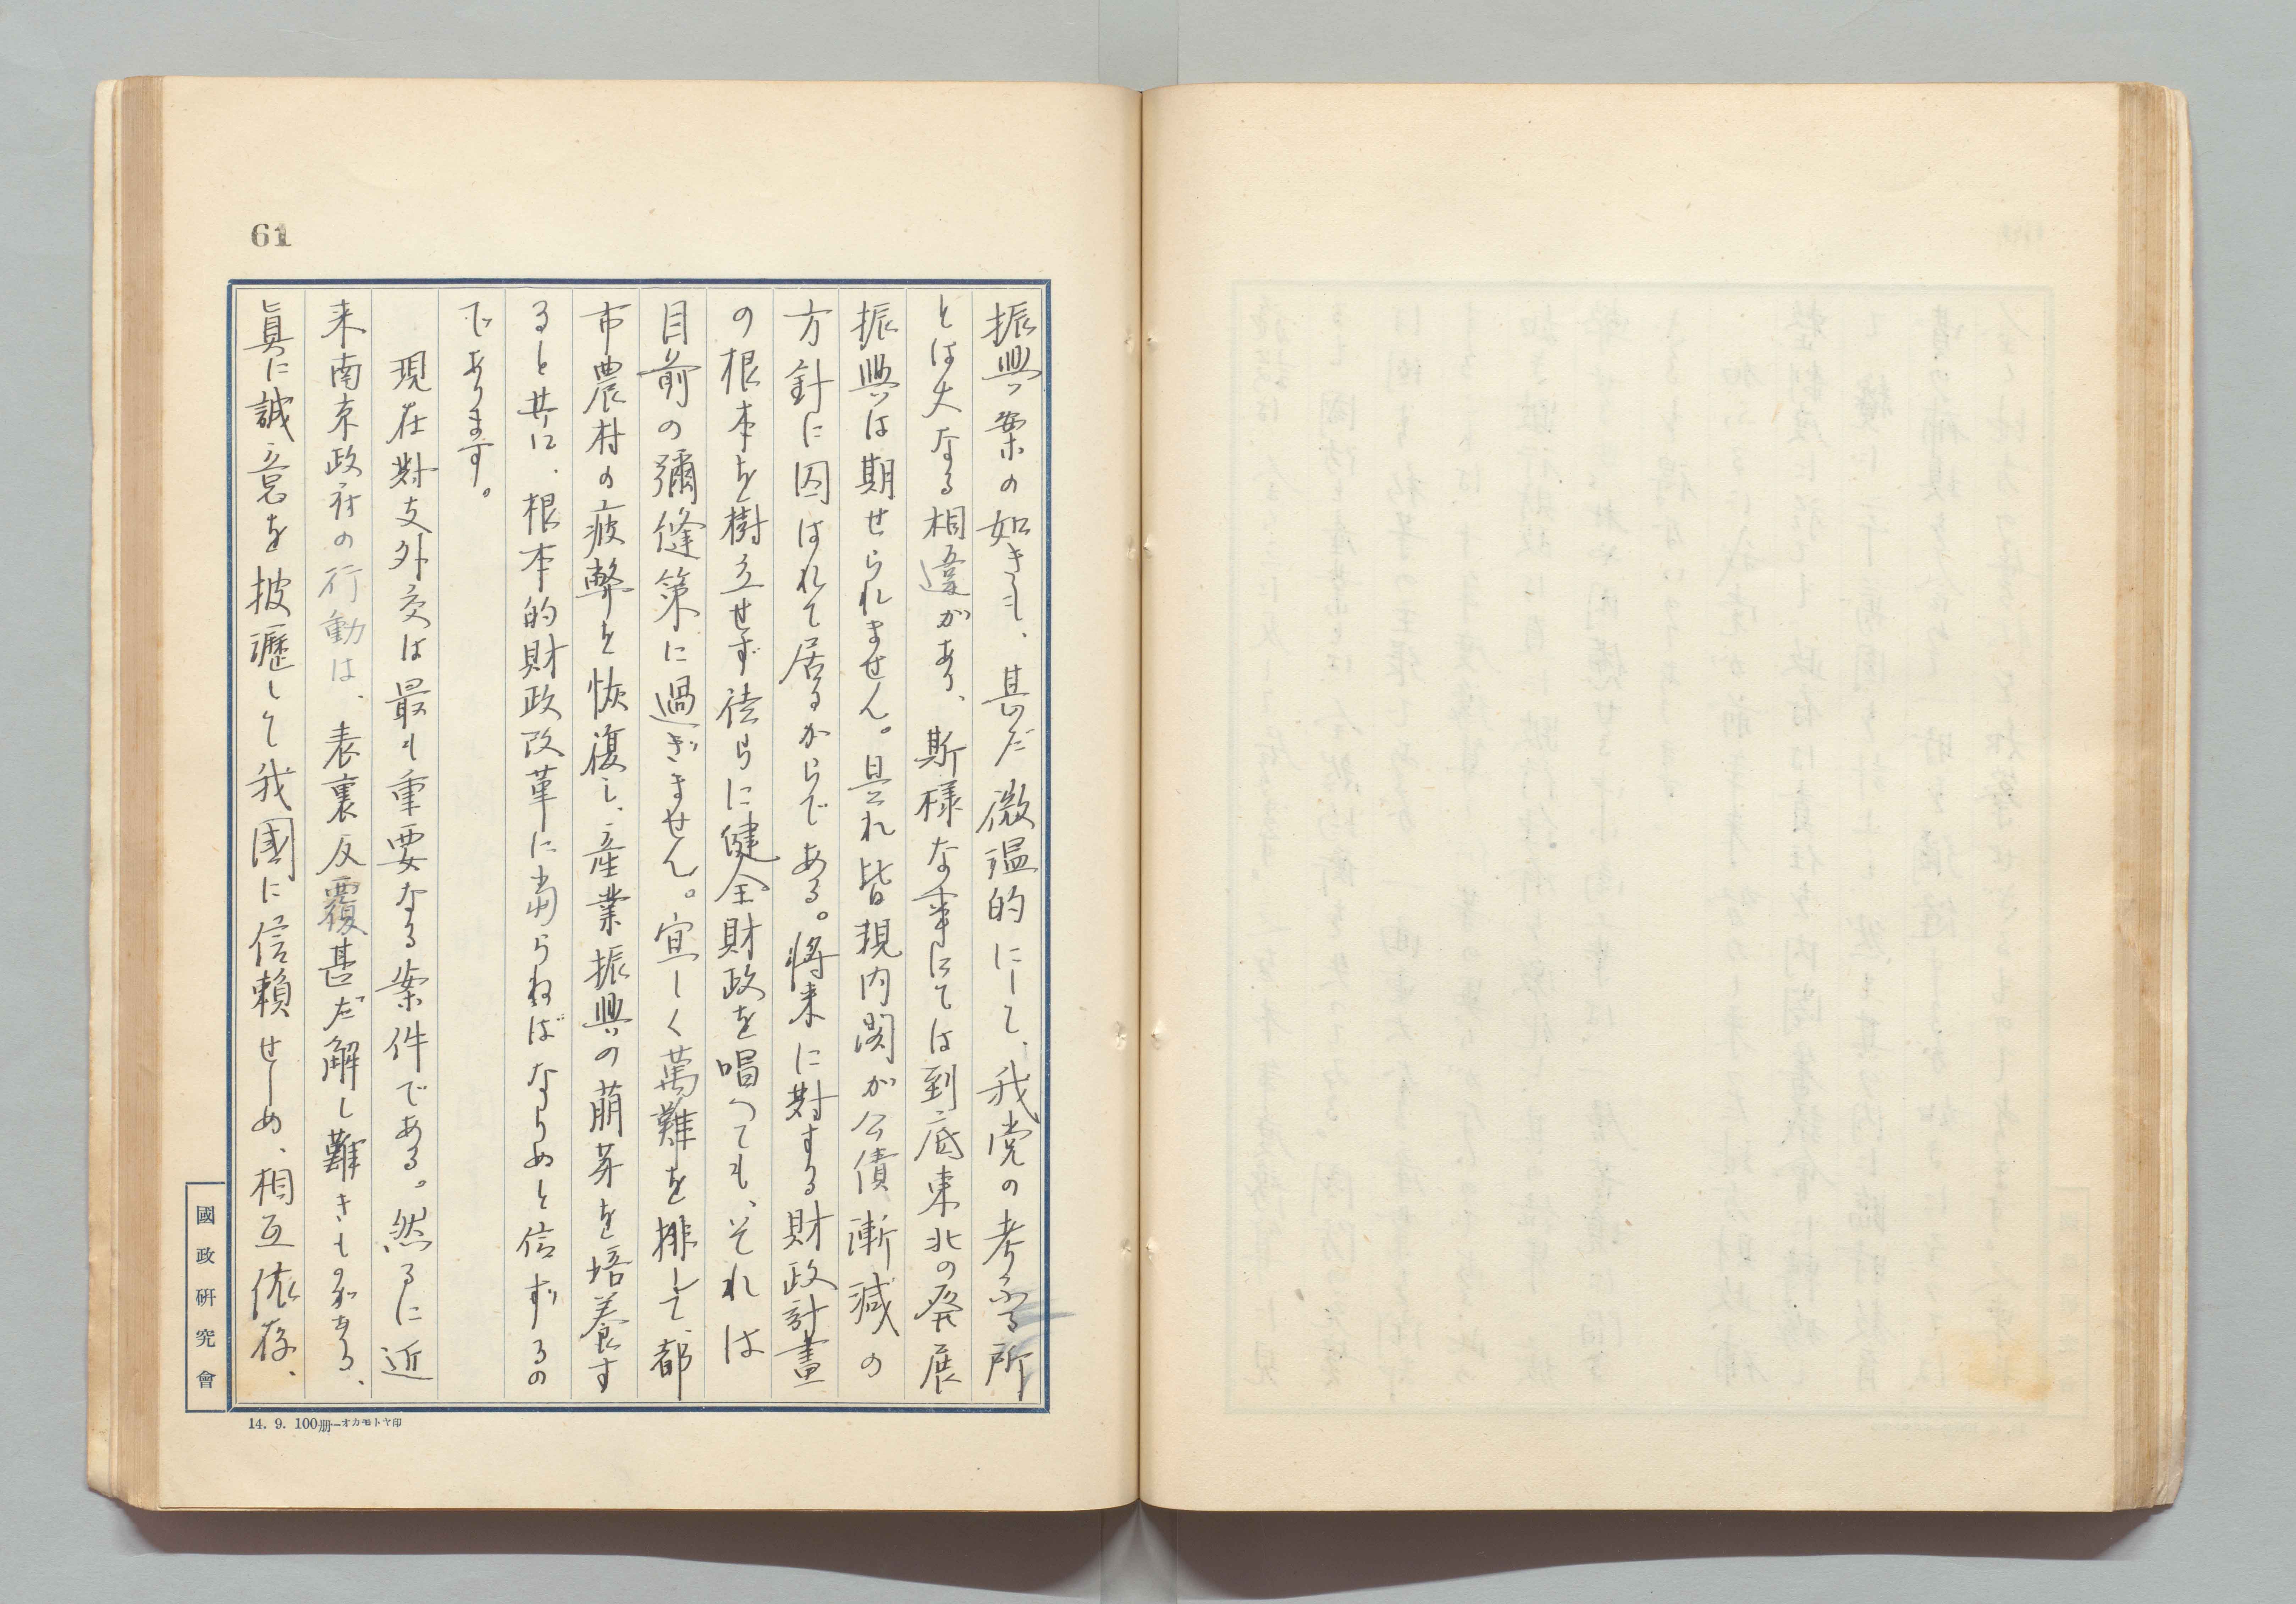 61
振興案の如きも、甚だ微温的にして、我党の考ふる所
とは大なる相違があり、斯様な事にては到底東北の発展
振興は期せられません。是れ皆現内閣が公債漸減の
方針に囚はれて居るからである。将来に対する財政計畫
の根本を樹立せず徒らに健全財政を唱へても、それは
目前の彌縫策に過ぎません。宜しく萬難を排して、都
市農村の疲弊を恢復し、産業振興の萌芽を培養す
ると共に、根本的財政改革に当らねばならぬと信ずるの
であります。
現在対支外交は最も重要なる案件である。然るに近
来南京政府の行動は、表裏反覆甚だ解し難きものがある、
眞に誠意を披瀝して我國に信頼せしめ、相互依存、
國政硏究會
14. 9. 100册—オカモトヤ印